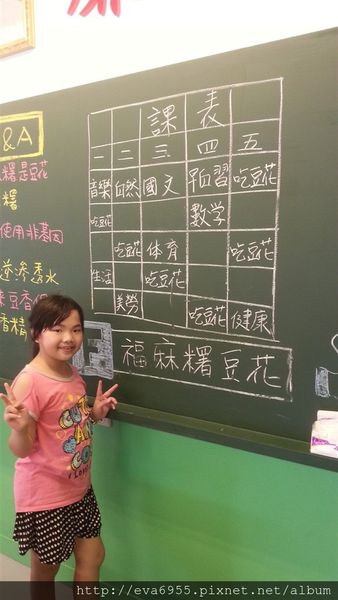 &A
糬是豆花
糬
使用非基因
逆滲透水
香精
課 表
一 二 三 四 五
音樂 自然 國文 自習 吃豆花
吃豆花 數學
吃豆花 体育 吃豆花
生活 吃豆花
美勞 吃豆花 健康
福麻糬豆花
http://eva6955.pixnet.net/album